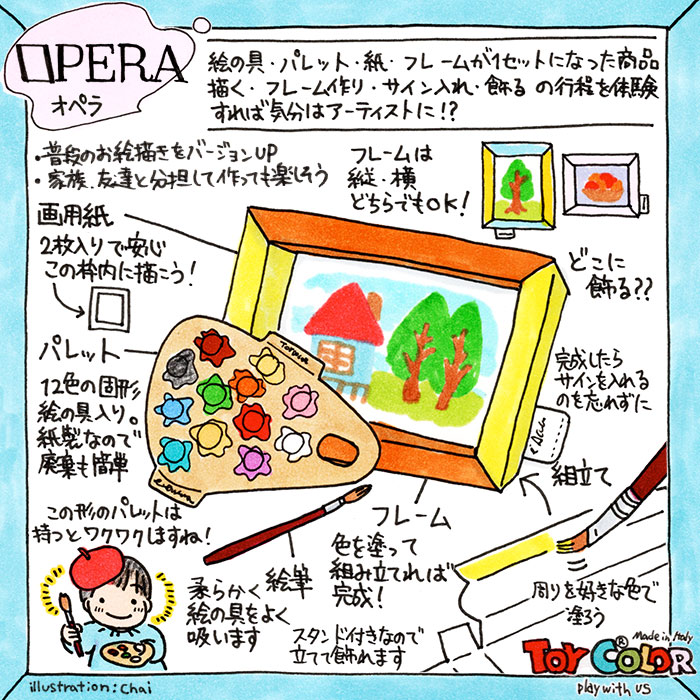 OPERA
オペラ
絵の具・パレット・紙・フレームが1セットになった商品
描く・フレーム作り・サイン入れ・飾る の行程を体験
すれば気分はアーティストに!?
・普段のお絵描きをバージョンUP
・家族、友達と分担して作っても楽しそう
フレームは
縦・横
どちらでもOK!
画用紙
2枚入りで安心
この枠内に描こう!
どこに
飾る??
パレット
12色の固形
絵の具入り。
紙製なので
廃棄も簡単
完成したら
サインを入れる
のを忘れずに
組立て
この形のパレットは
持つとワクワクしますね!
フレーム
色を塗って
組み立てれば
完成!
絵筆
柔らかく
絵の具をよく
吸います
スタンド付きなので
立てて飾れます
周りを好きな色で
塗ろう
Made in Italy
TOY COLOR®
play with us
illustration: Chai